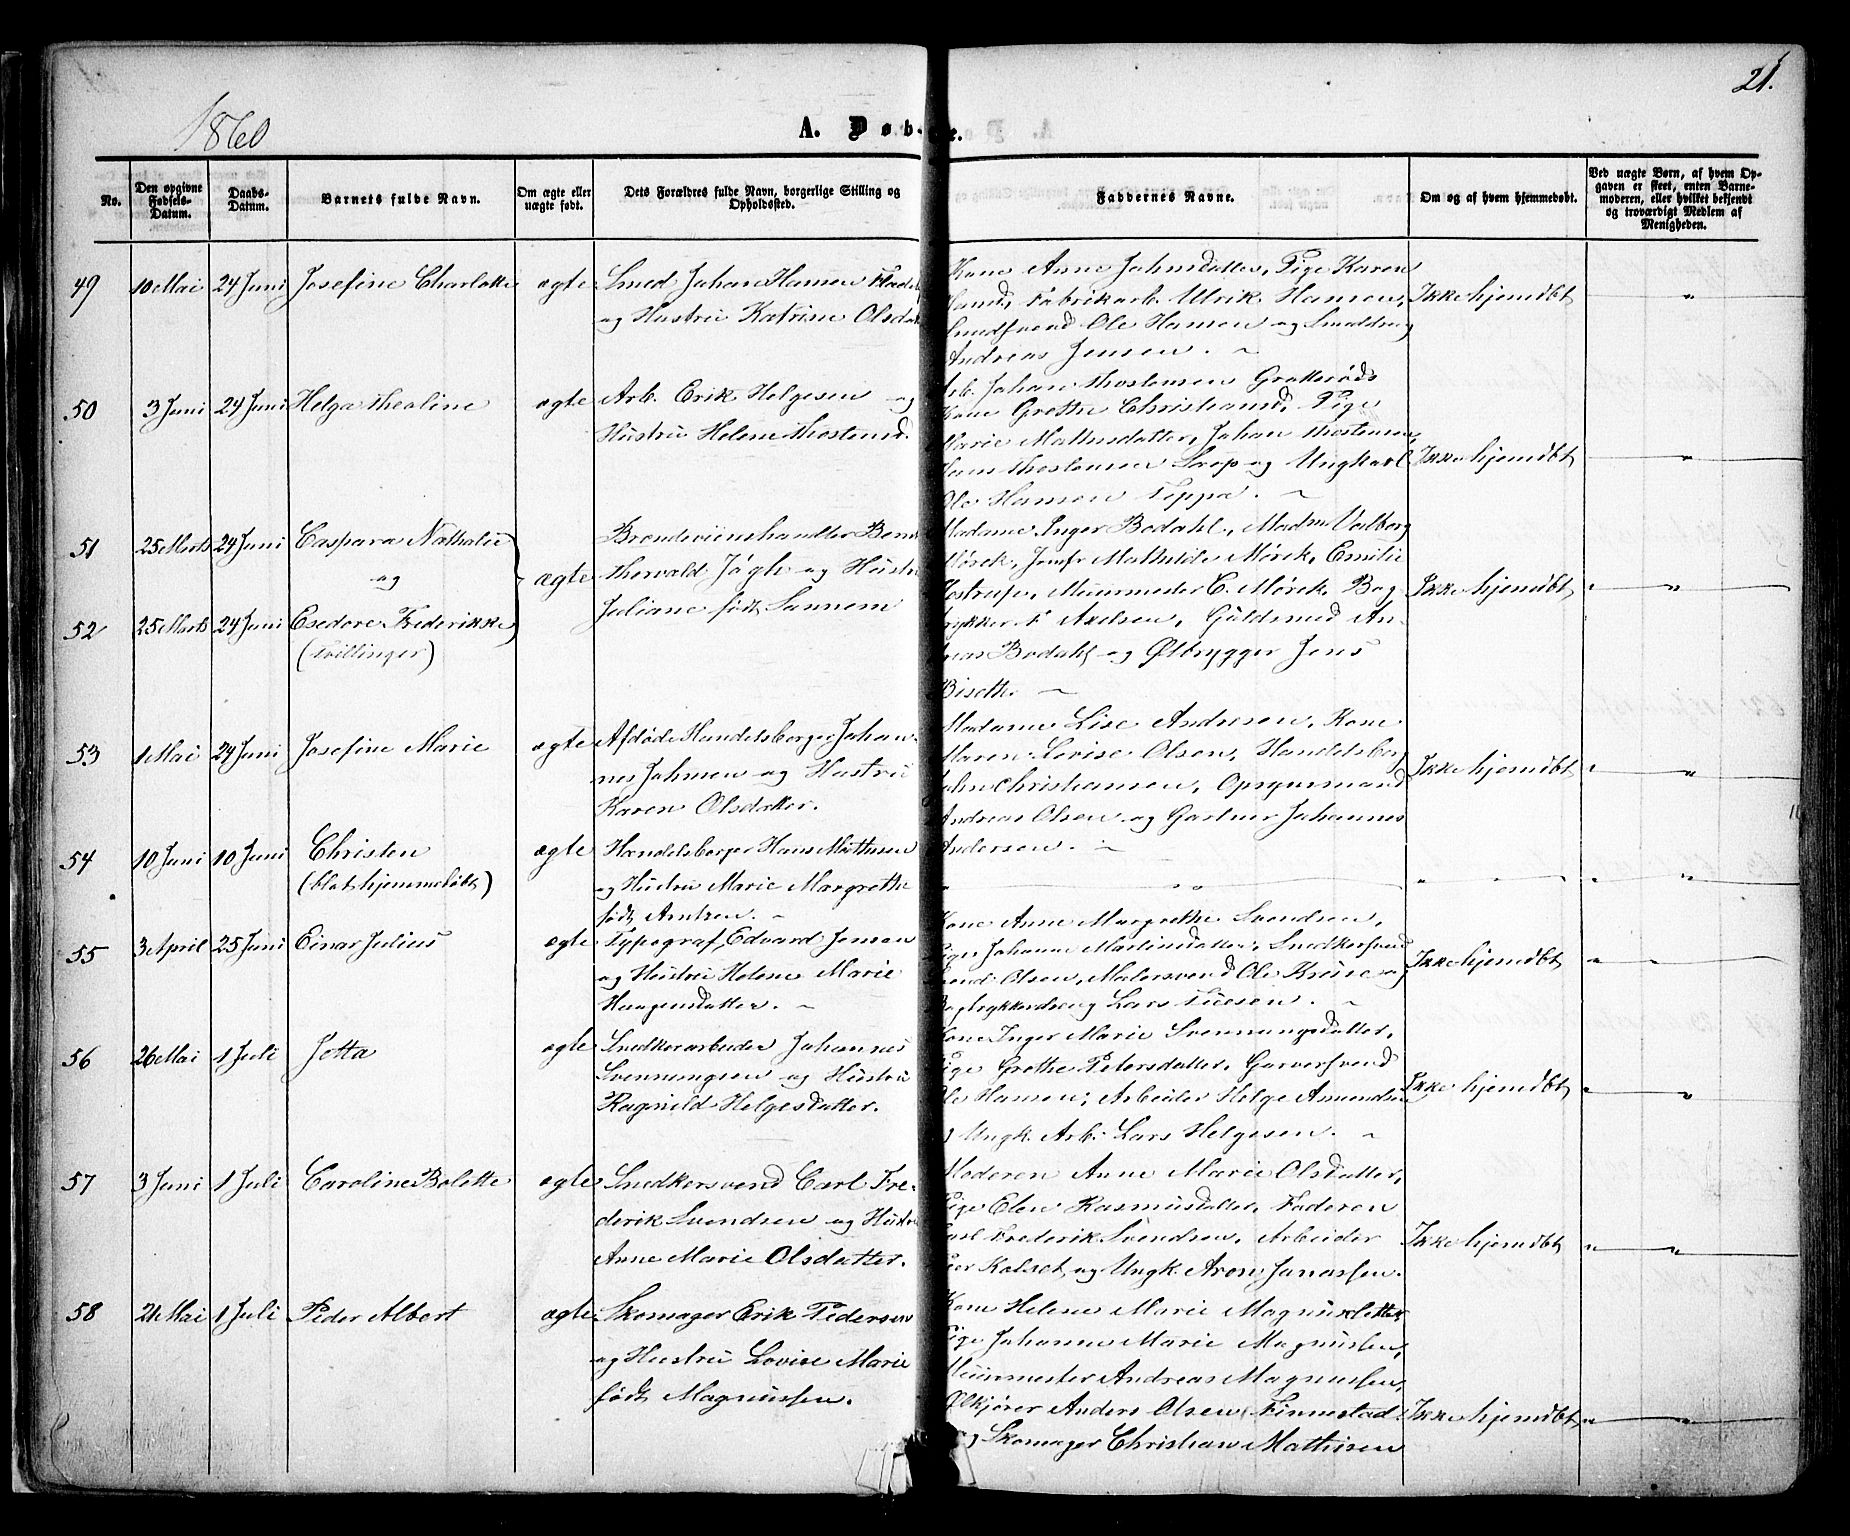 21.
1860
A. Døbte.
No.
Den opgivne Fødsels-Datum.
Daabs-Datum.
Barnets fulde Navn.
Om ægte eller uægte født.
Dets Forældres fulde Navn, borgerlige Stilling og Opholdssted.
Faddernes Navne.
Om og af hvem hjemmedøbt.
Ved uægte Børn, af hvem Opgaven er skeet, enten Barnemoderen, eller hvilket bekjendt og troværdigt Medlem af Menigheden.
49 10 Mai 24 Juni Josefine Charlotte ægte
Smed Johan Hansen
og Hustru Katrine Olsdat
Kone Anne Johnsdatter, Pige Karen
Hansd, Fabrikarb. Ulrik Hansen,
Smedsvend Ole Hansen og Smeddreng
Andreas Jensen. ~
Ikke hjemdbt "
50 3 Juni 24 Juni Helga Theoline ægte
Arb. Erik Helgesen og
Hustru Helene Thostensd.
Arb. Johan Thostensen Grotterøds
Kone Grethe Christiansd, Pige
Marie Mathisdatter, Johan Thostensen,
Hans Thostensen Saxp og Ungkarl
Ole Hansen Teppa. ~
Ikke hjemdbt "
51 25 Marts 24 Juni Caspara Nathalie
og
52 25 Marts 24 Juni Esedore Frederikke
(tvillinger)
ægte
Brændeviinshandler Bernt
Thorvald Jøgh og Hustru
Juliane født Sannem
Madame Inger Bodahl, Madm Valborg
Mørck, Jomfr Mathilde Mørck, Emilie
Hostrup, Muurmester C. Mørck, Bog
trykker F Axelsen, Guldsmed An-
dreas Bodahl og Ølbrygger Jens
Bisett. ~
Ikke hjemdbt " "
53 1 Mai 24 Juni Josefine Marie ægte
Afdøde Handelsborger Johan-
nes Johnsen og Hustru
Karen Olsdatter.
Madame Lise Andresen, Kone
Maren Lovise Olsen, Handelsborg
John Christiansen, Opsynsmand
Andreas Olsen og Gartner Johannes
Andersen. ~
Ikke hjemdbt " "
54 10 Juni 10 Juni Christen ægte
(blot hjemmedøbt)
Handelsborger Hans Mathisen
og Hustru Marie Margrethe
født Arntzen. ~
" " " " " "
55 3 April 25 Juni Einar Julius ægte
Typograf Edvard Jensen
og Hustru Helene Marie
Haagensdatter. ~
Kone Anne Margrethe Svendsen,
Pige Johanne Martinsdatter, Snedkersvend
Svend Olsen, Malersvend Ole Kruse og
Bogtrykkerdreng Lars Tuesen. ~
Ikke hjemdbt " "
56 26 Mai 1 Juli Jetta ægte
Snedkerarbeider Johannes
Svennungsen og Hustru
Ragnild Helgesdatter.
Kone Inger Marie Svennungsdatter,
Pige Grethe Petersdatter, Garversvend
Ole Hansen, Arbeider Helge Amundsen
og Ungk. Arb. Lars Helgesen. ~
Ikke hjemdbt " "
57 3 Juni 1 Juli Caroline Bolette ægte
Snedkersvend Carl Fre-
derik Svendsen og Hustru
Anne Marie Olsdatter.
Moderen Anne Marie Olsdatter,
Pige Elen Rasmusdatter, Faderen
Carl Frederik Svendsen, Arbeider
Peer Kolset og Ungk. Aron Janassen.
Ikke hjemdbt " "
58 21 Mai 1 Juli Peder Albert ægte
Skomager Erik Pedersen
og Hustru Lovise Marie
født Magnussen.
Kone Helene Marie Magnusdatter
Pige Johanne Marie Magnussen,
Muurmester Andreas Magnussen,
Ølkjører Anders Olsen Finnestad
og Skomager Christian Mathisen
Ikke hjemdbt " "